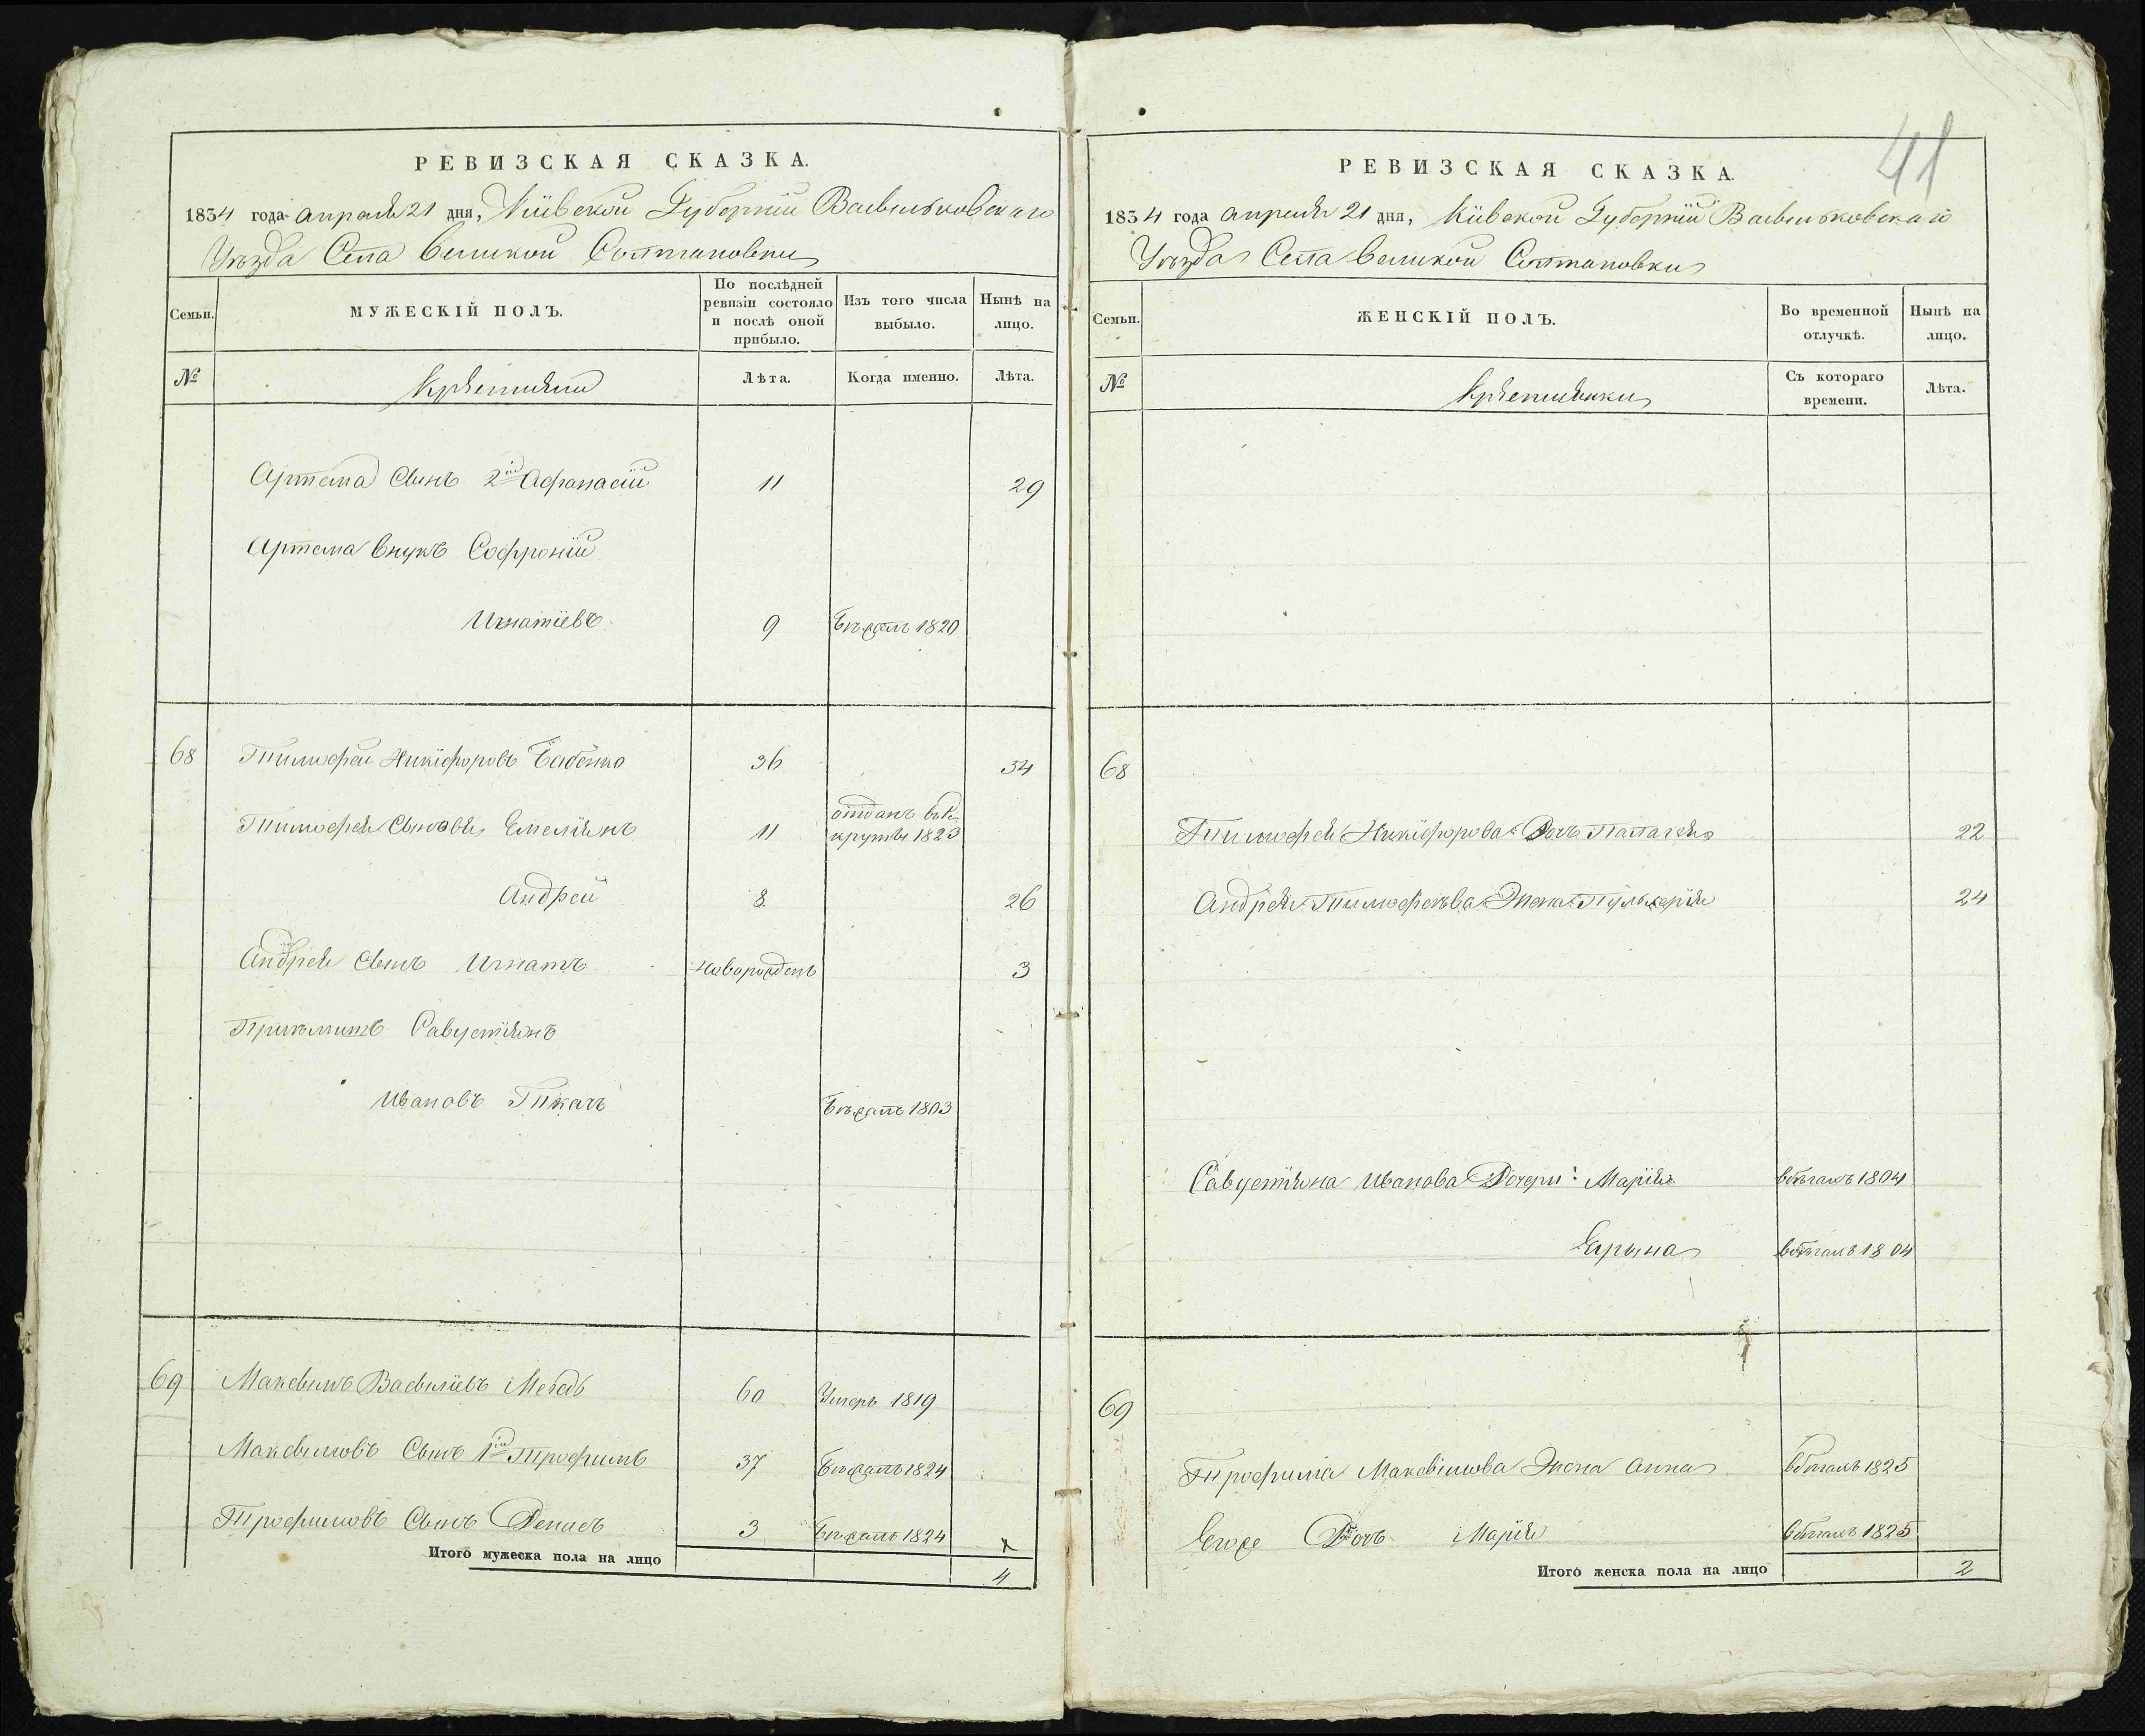 РЕВИЗСКАЯ СКАЗКА.
1834 года апреля 21 дня, Кіивской Губерніи Васильковскаго
Уѣзда Села Великой Солтановки
Семьи.
МУЖЕСКІЙ ПОЛЪ.
По послѣдней
ревизіи состояло
и послѣ оной
прибыло.
Изъ того числа
выбыло.
Нынѣ на
лицо.
№
Крѣстьяни
Лѣта.
Когда именно.
Лѣта.
Артема Сынъ 2й Афанасій 11 29
Артема внукъ Софроній
Игнатіевъ 9 Бѣжалъ 1820
68 Тимофей Никіфоровъ Бабенко 36 54
Тимофея Сыновья Емеліянъ 11 отданъ въ Ре
круты 1823
Андрей 8 26
Андрея Сынъ Игнатъ новорожденъ 3
Приимытъ Савустіянъ
Ивановъ Ткачъ Бѣжалъ 1803
69 Максимъ Васильевъ Мегедь 60 Умеръ 1819
Максимовъ Сынъ 1й Трофимъ 37 Бѣжалъ 1824
Трофимовъ Сынъ Денисъ 3 Бѣжалъ 1824
Итого мужеска пола на лицо 4
41
РЕВИЗСКАЯ СКАЗКА.
1834 года апреля 21 дня, Кіивской Губерніи Васильковскаго
Уѣзда Села Великой Солтановки
Семьи.
ЖЕНСКІЙ ПОЛЪ.
Во временной
отлучкѣ.
Нынѣ на
лицо.
№
Крѣстьянки
Съ котораго
времени.
Лѣта.
68
Тимофея Никіфорова Дочъ Палагея 22
Андрея Тимофеева Жена Пульхерія 24
Савустіяна Иванова Дочери: Марія вбѣгахъ 1804
Ярына вбѣгахъ 1804
69
Трофима Максимова Жена Анна вбѣгахъ 1825
Егоже Дочъ Марія вбѣгахъ 1825
Итого женска пола на лицо 2